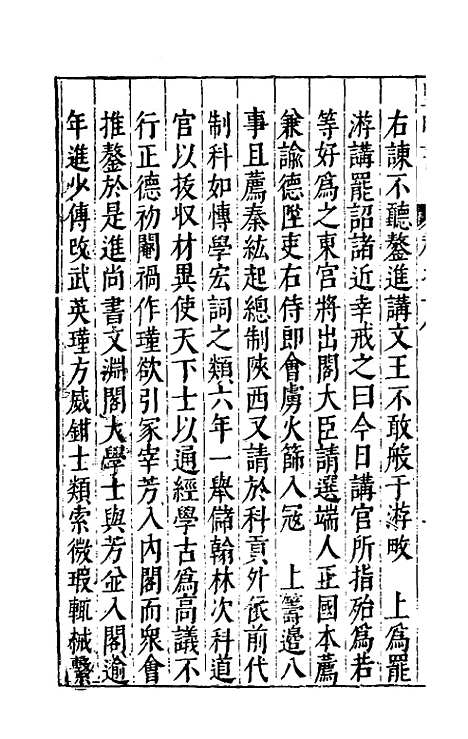 右諫不聽鏊進講文王不敢般于游畋　上爲罷
游講罷詔諸近幸戒之曰今日講官所指殆爲若
等好爲之東宮將出閣大臣請選端人正國本薦
兼諭德陞吏右侍郎會虜火篩入寇　上籌邊八
事且薦秦紘起總制陝西又請於科貢外倣前代
制科如愽學宏詞之類六年一舉儲翰林次科道
官以拔収材異使天下士以通經學古爲高議不
行正德初閹禍作瑾欲引冢宰芳入內閣而衆會
推鏊於是進尚書文淵閣大學士與芳並入閣逾
年進少傳改武英瑾方威鉗士類索微瑕輒械繫